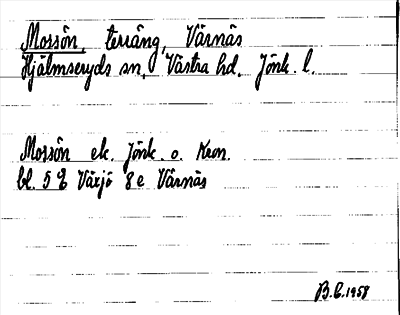 Mossön, terräng, Värnäs
Hjälmseryds sn, Västra hd. Jönk. l.
Mossön ek. Jönk. o. Kron.
bl. 5 Växjö 8 e Värnäs
B.C. 1958